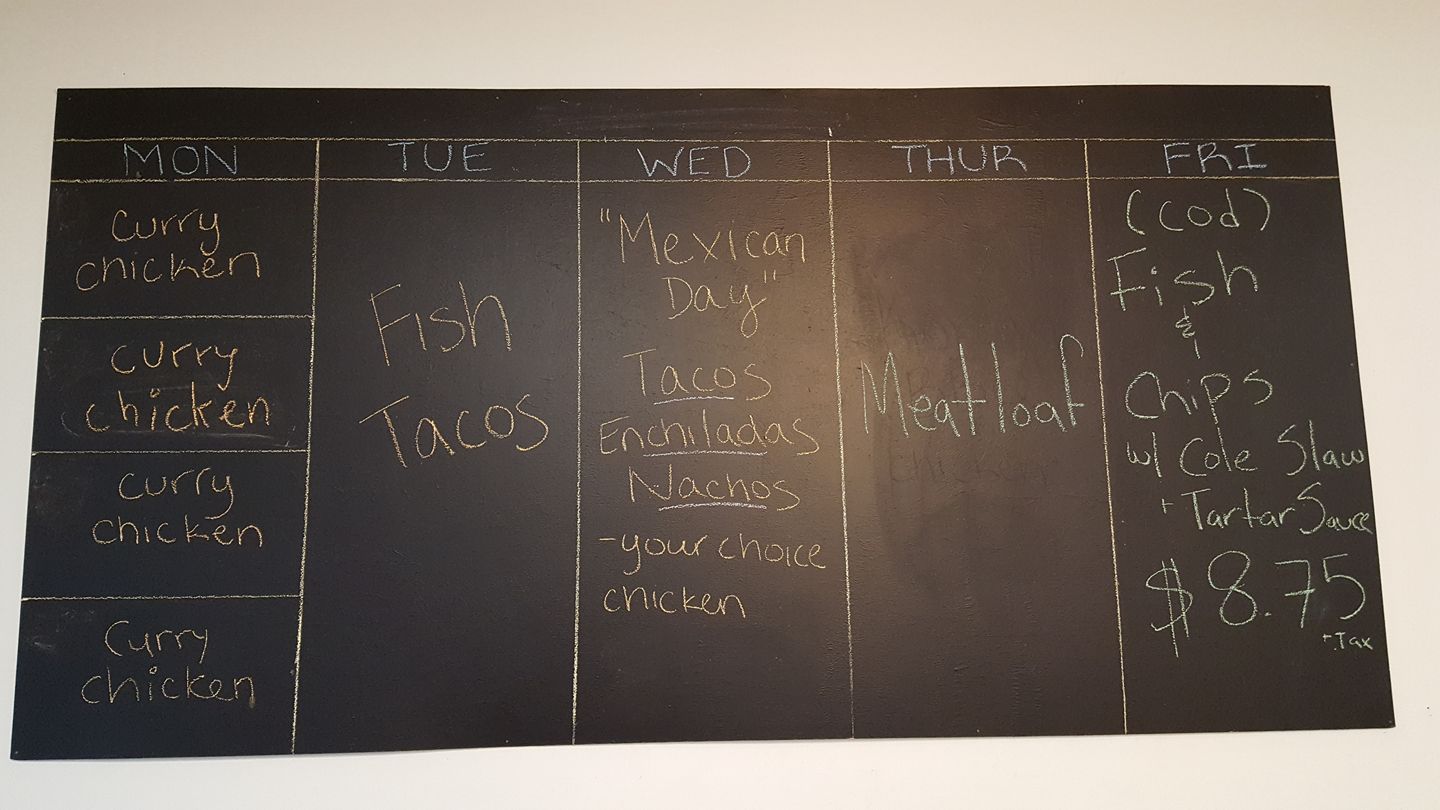 MON
TUE
WED
THUR
FRI
curry
chicken
curry
chicken
curry
chicken
curry
chicken
Fish
Tacos
"Mexican
Day"
Tacos
Enchiladas
Nachos
-your choice
chicken
Meatloaf
(cod)
Fish
&
Chips
w/ Cole Slaw
+ Tartar Sauce
$8.75
+.Tax